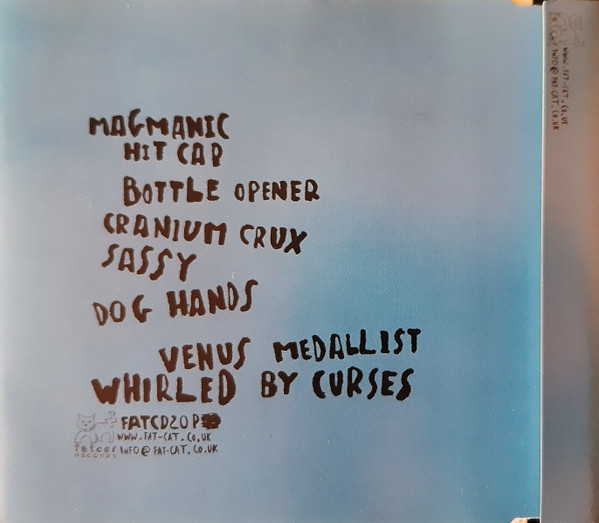 MAGMANIC
HIT CAP
BOTTLE OPENER
CRANIUM CRUX
SASSY
DOG HANDS
VENUS MEDALLIST
WHIRLED BY CURSES
FATCD20P
WWW.FAT-CAT.CO.UK
INFO@FAT-CAT.CO.UK
fatcat
RECORDS
WWW.FAT-CAT.CO.UK
INFO@FAT-CAT.CO.UK